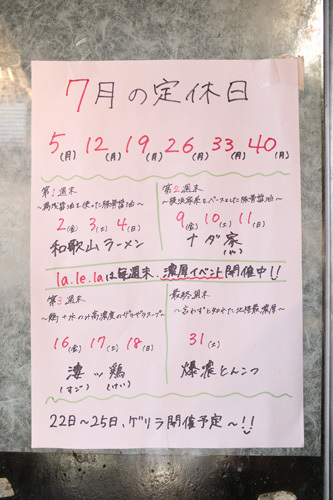 7月の定休日
5(月) 12(月) 19(月) 26(月) 33(月) 40(月)
第1週末
〜萬醤油を使った豚骨醤油〜
2(金) 3(土) 4(日)
和歌山ラーメン
第2週末
〜横浜家系をベースとした豚骨醤油〜
9(金) 10(土) 11(日)
ナダ家
(や)
la.le.laは毎週末、濃厚イベント開催中!!
第3週末
〜鶏+水のみ高濃度のザラザラスープ〜
16(金) 17(土) 18(日)
凄ッ鶏
(すごっ) (けい)
最終週末
31(土)
爆濃とんこつ
22日〜25日、ゲリラ開催予定〜!!